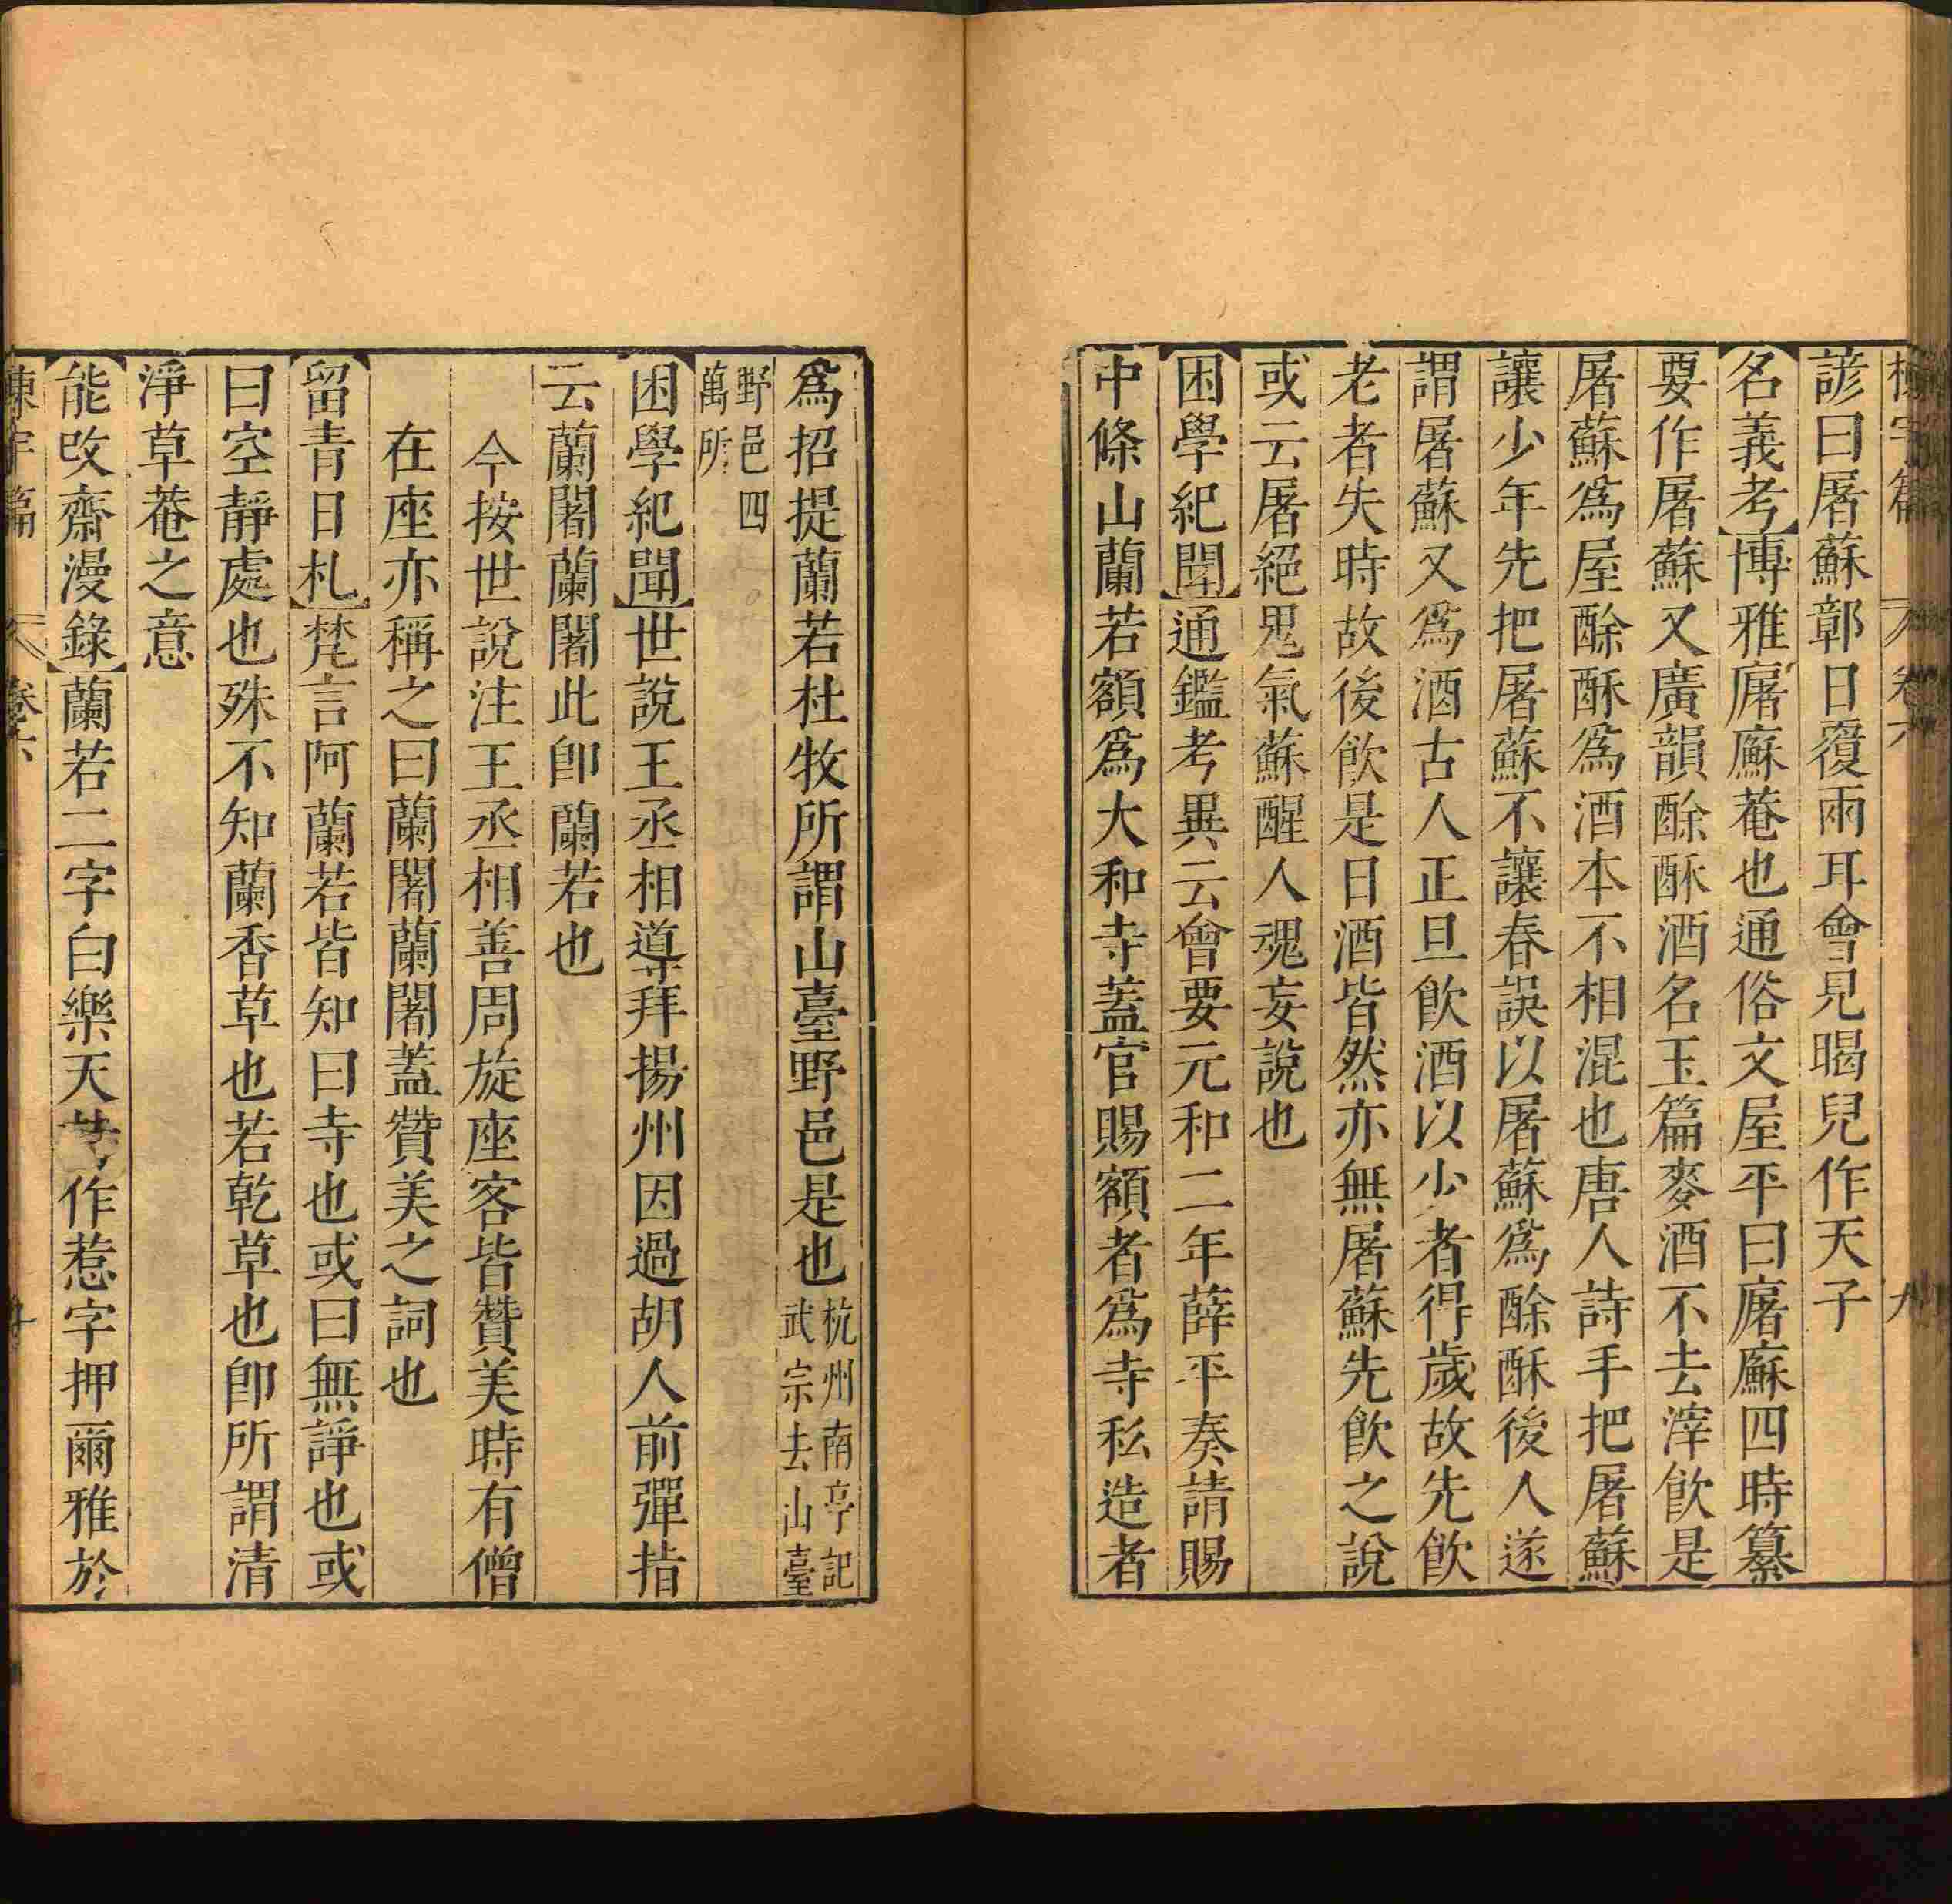 諺曰屠蘇鄣日覆兩耳會見瞎兒作天子
名義考博雅廜䕷菴也通俗文屋平曰廜䕷四時纂
要作屠蘇又廣韻酴酥酒名玉篇麥酒不去滓飲是
屠蘇爲屋酴酥爲酒本不相混也唐人詩手把屠蘇
讓少年先把屠蘇不讓春誤以屠蘇爲酴酥後人遂
謂屠蘇又爲酒古人正旦飲酒以少者得歲故先飲
老者失時故後飲是日酒皆然亦無屠蘇先飲之說
或云屠絕鬼氣蘇醒人魂妄說也
困學紀聞通鑑考異云會要元和二年薛平奏請賜
中條山蘭若額爲大和寺蓋官賜額者爲寺私造者
爲招提蘭若杜牧所謂山臺野邑是也杭州南亭記武宗去山臺
野邑四萬所
困學紀聞世說王丞相導拜揚州因過胡人前彈指
云蘭闍蘭闍此卽蘭若也
今按世說注王丞相善周旋座客皆贊美時有僧
在座亦稱之曰蘭闍蘭闍蓋贊美之詞也
留青日札梵言阿蘭若皆知曰寺也或曰無諍也或
曰空靜處也殊不知蘭香草也若乾草也卽所謂清
淨草菴之意
能攺齋漫錄蘭若二字白樂天作惹字押爾雅於